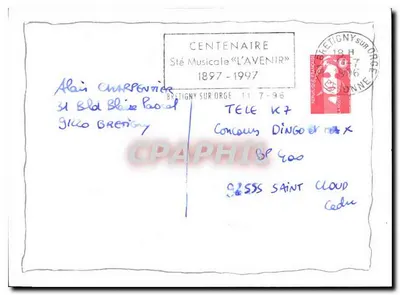 CENTENAIRE
Sté Musicale "L'AVENIR"
1897-1997
BRETIGNY SUR ORGE 11 7-96
BRETIGNY SUR ORGE
18 H
Alain CHARPENTIER
31 Bld Blaise Pascal
91220 BRETIGNY
TELE K7
Concours DINGO
BP 400
92555 SAINT CLOUD
Cedex
CPAPHIC